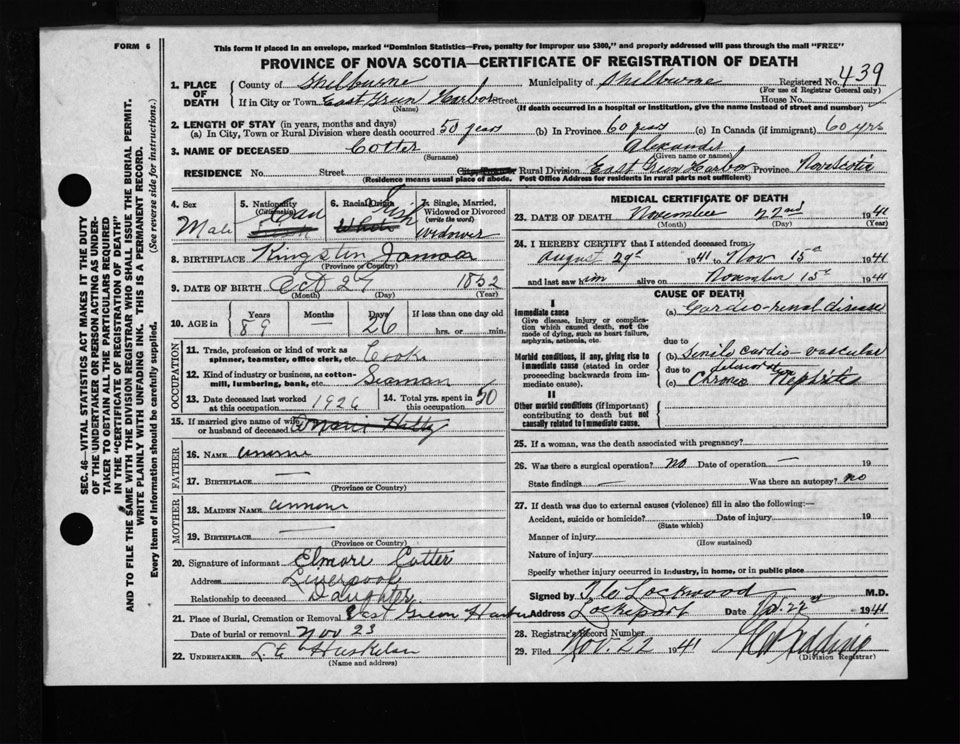 FORM 6
This form if placed in an envelope, marked "Dominion Statistics—Free, penalty for improper use $300," and properly addressed will pass through the mail "FREE"
PROVINCE OF NOVA SCOTIA—CERTIFICATE OF REGISTRATION OF DEATH
1. PLACE OF DEATH County of Shelburne Municipality of Shelburne Registered No. 439
(For use of Registrar General only)
If in City or Town East Green Harbor Street House No.
(Name) (If death occurred in a hospital or institution, give the name instead of street and number)
2. LENGTH OF STAY (in years, months and days)
(a) In City, Town or Rural Division where death occurred 50 years (b) In Province 60 years (c) In Canada (if immigrant) 60 yrs
3. NAME OF DECEASED Cotter Alexander
(Surname) (Given name or names)
RESIDENCE No. Street Rural Division East Green Harbor Province Nova Scotia
(Residence means usual place of abode. Post Office Address for residents in rural parts not sufficient)
4. Sex Male
5. Nationality (Citizenship)
6. Racial Origin
7. Single, Married, Widowed or Divorced (write the word) Widower
8. BIRTHPLACE Kingston Jamaca
(Province or Country)
9. DATE OF BIRTH Oct 27 1852
(Month) (Day) (Year)
10. AGE in Years Months Days If less than one day old
89 — 26 hrs. or min.
OCCUPATION
11. Trade, profession or kind of work as spinner, teamster, office clerk, etc. Cook
12. Kind of industry or business, as cotton-mill, lumbering, bank, etc. Seaman
13. Date deceased last worked at this occupation 1926 14. Total yrs. spent in this occupation 50
15. If married give name of wife or husband of deceased
FATHER
16. NAME
17. BIRTHPLACE —
(Province or Country)
MOTHER
18. MAIDEN NAME
19. BIRTHPLACE —
(Province or Country)
20. Signature of informant Elmore Cotter
Address Liverpool
Relationship to deceased Daughter
21. Place of Burial, Cremation or Removal East Green Harbor
Date of burial or removal Nov 23
22. UNDERTAKER
(Name and address)
MEDICAL CERTIFICATE OF DEATH
23. DATE OF DEATH November 22nd 1941
(Month) (Day) (Year)
24. I HEREBY CERTIFY that I attended deceased from:
August 29th 1941 to Nov 15th 1941
and last saw him alive on November 15th 1941
CAUSE OF DEATH
I
Immediate cause
Give disease, injury or complication which caused death, not the mode of dying, such as heart failure, asphyxia, asthenia, etc.
(a) Cardio-renal disease
due to
Morbid conditions, if any, giving rise to immediate cause (stated in order proceeding backwards from immediate cause).
(b) Senile cardio-vascular
due to degeneration
(c) Chronic Nephritis
II
Other morbid conditions (if important) contributing to death but not causally related to immediate cause.
25. If a woman, was the death associated with pregnancy?
26. Was there a surgical operation? No Date of operation — 19
State findings — Was there an autopsy? no
27. If death was due to external causes (violence) fill in also the following:
Accident, suicide or homicide? Date of injury 19
(State which)
Manner of injury
(How sustained)
Nature of injury
Specify whether injury occurred in industry, in home, or in public place
Signed by Lockwood M.D.
Address Lockeport Date 22nd 1941
28. Registrar's Record Number
29. Filed Nov. 22 1941
(Division Registrar)
SEC. 46—VITAL STATISTICS ACT MAKES IT THE DUTY
OF THE UNDERTAKER OR PERSON ACTING AS UNDER-
TAKER TO OBTAIN ALL THE PARTICULARS REQUIRED
IN THE "CERTIFICATE OF REGISTRATION OF DEATH"
AND TO FILE THE SAME WITH THE DIVISION REGISTRAR WHO SHALL ISSUE THE BURIAL PERMIT.
WRITE PLAINLY WITH UNFADING INK. THIS IS A PERMANENT RECORD.
Every item of information should be carefully supplied. (See reverse side for instructions.)